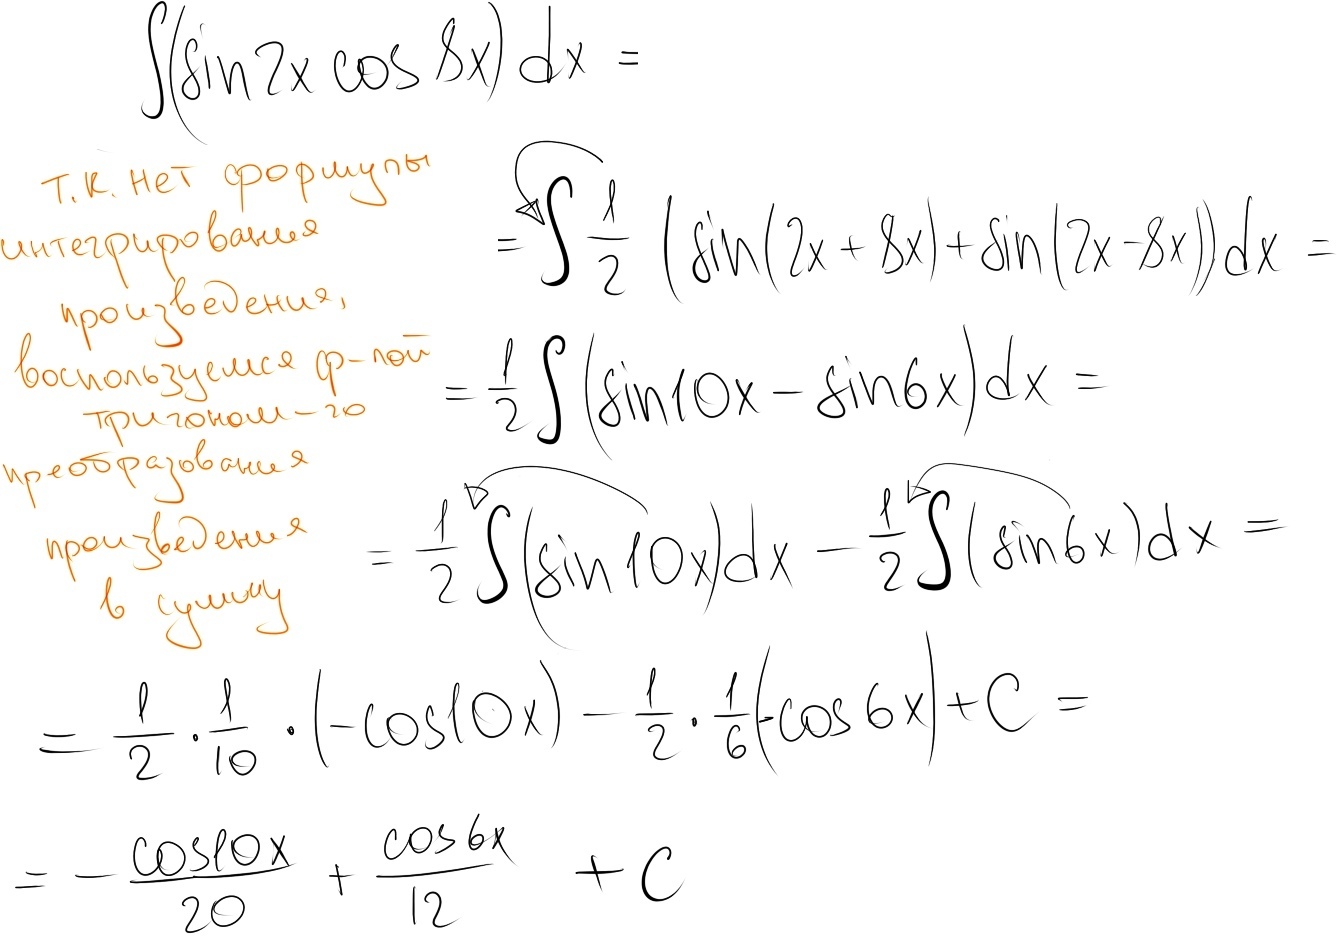 ∫(sin2x cos 8x) dx =
т.к. нет формулы
интегрирования
произведения,
воспользуемся ф-лой
тригоном-го
преобразования
произведения
в сумму
= ∫ 1/2 (sin(2x + 8x) + sin(2x - 8x))dx =
= 1/2 ∫ (sin10x - sin6x)dx =
= 1/2 ∫(sin10x)dx - 1/2 ∫(sin6x)dx =
= 1/2 · 1/10 · (-cos10x) - 1/2 · 1/6(-cos6x) + C =
= - cos10x/20 + cos6x/12 + C